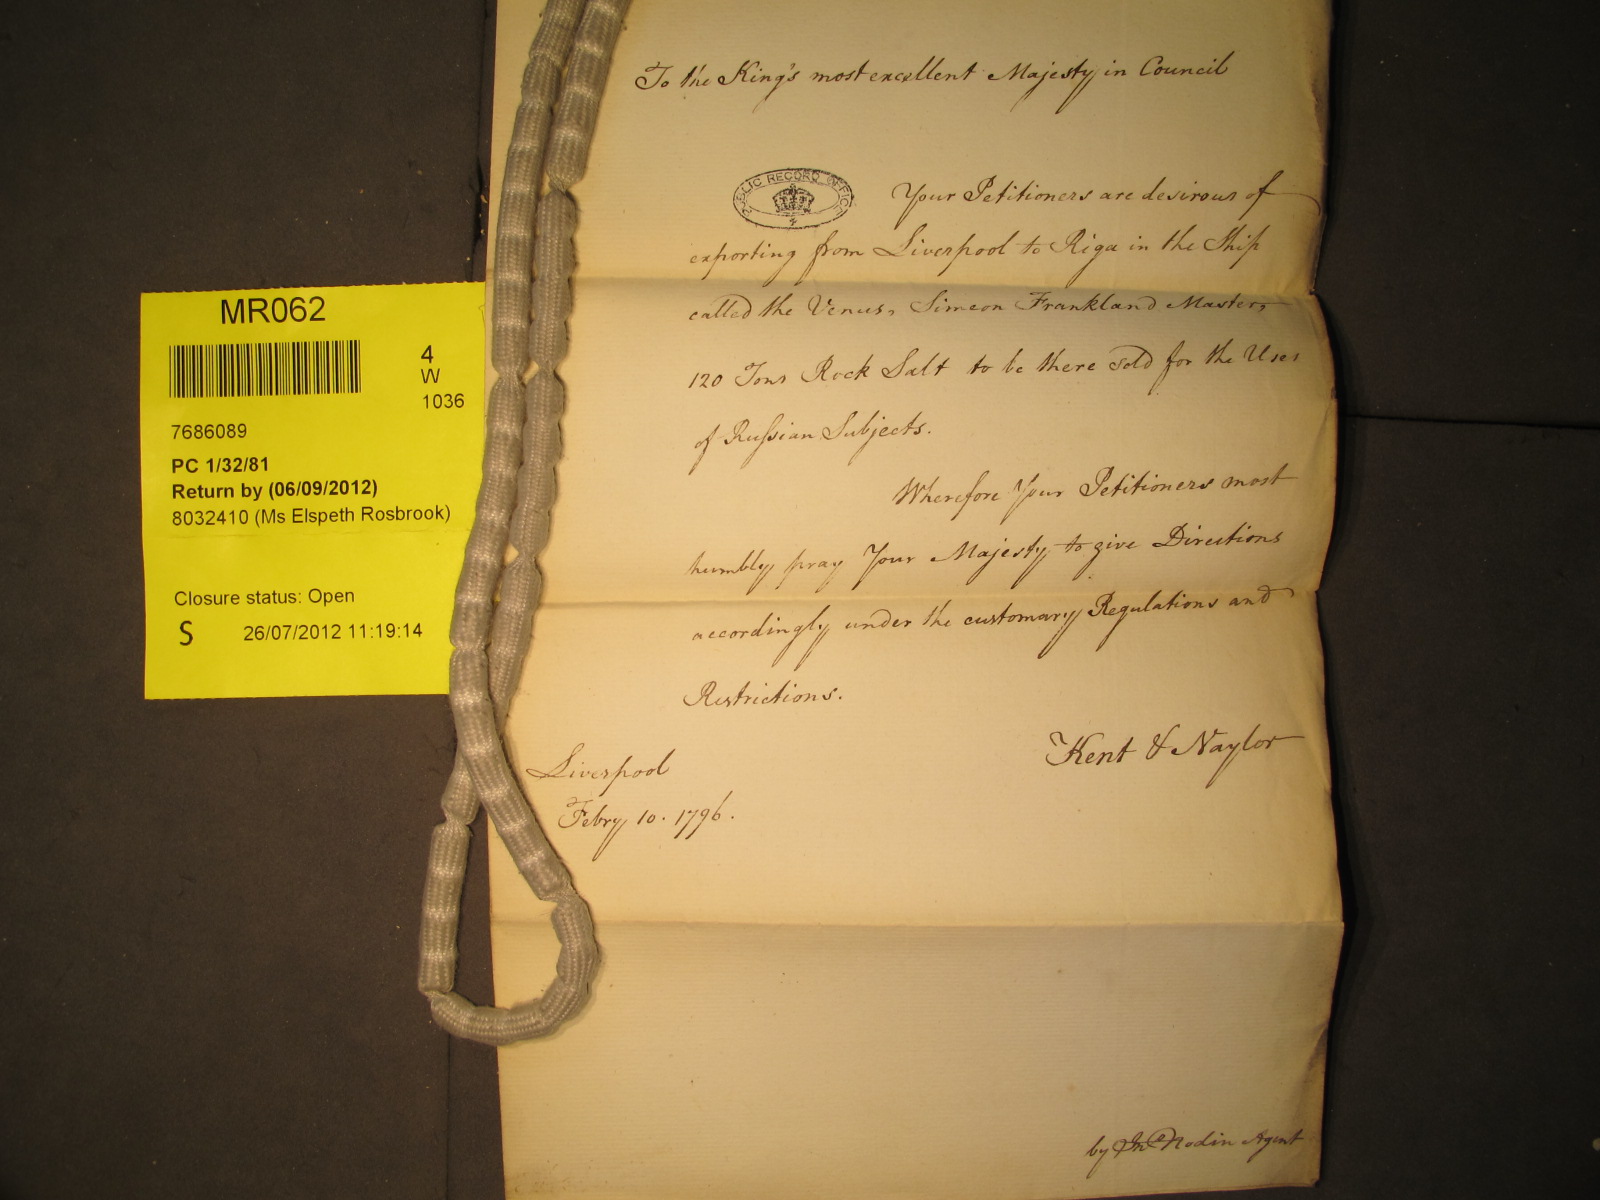 To the King's most excellent Majesty in Council
PUBLIC RECORD OFFICE
Your Petitioners are desirous of
exporting from Liverpool to Riga in the Ship
called the Venus, Simeon Frankland Master,
120 Tons Rock Salt to be there sold for the Uses
of Russian Subjects.
Wherefore Your Petitioners most
humbly pray Your Majesty to give Directions
accordingly under the customary Regulations and
Restrictions.
Kent & Naylor
Liverpool
Febry 10. 1796.
by Agent
MR062
4
W
1036
7686089
PC 1/32/81
Return by (06/09/2012)
8032410 (Ms Elspeth Rosbrook)
Closure status: Open
S 26/07/2012 11:19:14